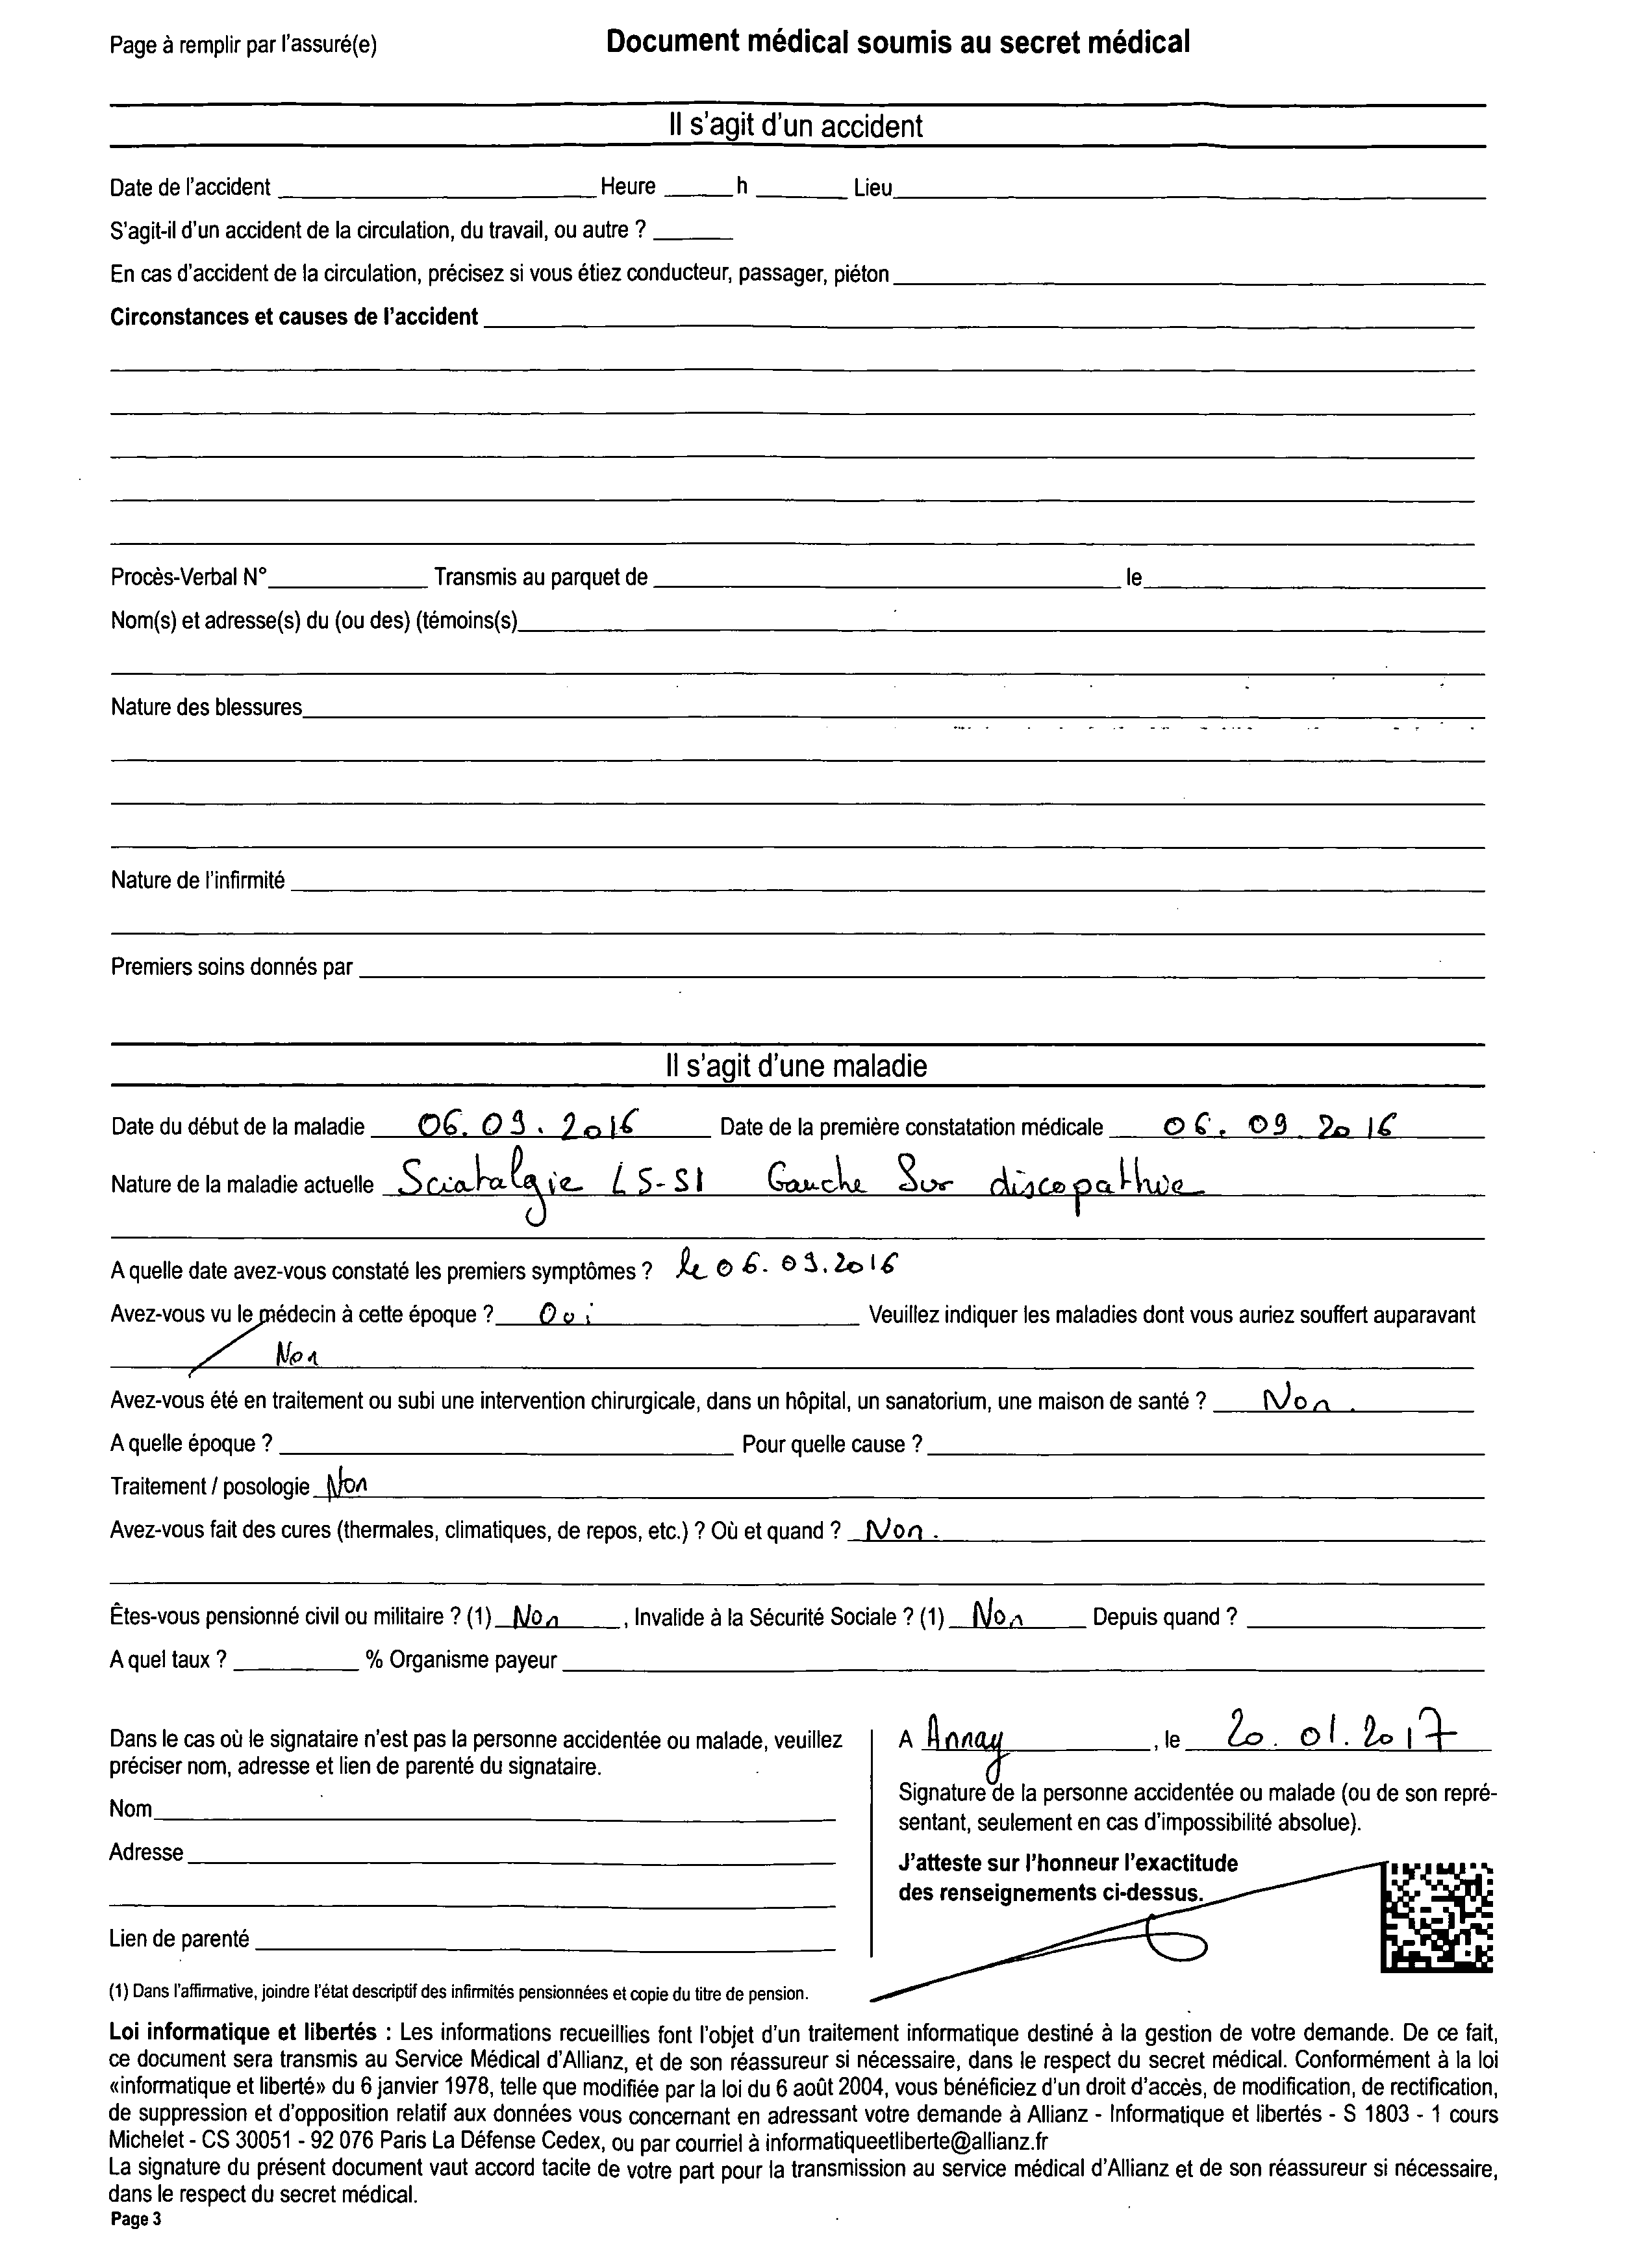 Page à remplir par l'assuré(e)
Document médical soumis au secret médical
Il s'agit d'un accident
Date de l'accident Heure h Lieu
S'agit-il d'un accident de la circulation, du travail, ou autre ?
En cas d'accident de la circulation, précisez si vous étiez conducteur, passager, piéton
Circonstances et causes de l'accident
Procès-Verbal N° Transmis au parquet de le
Nom(s) et adresse(s) du (ou des) (témoins(s)
Nature des blessures
Nature de l'infirmité
Premiers soins donnés par
Il s'agit d'une maladie
Date du début de la maladie 06.09.2016 Date de la première constatation médicale 06.09.2016
Nature de la maladie actuelle Sciatalgie L5-S1 Gauche Sur discopathie
A quelle date avez-vous constaté les premiers symptômes ? le 06.09.2016
Avez-vous vu le médecin à cette époque ? Oui Veuillez indiquer les maladies dont vous auriez souffert auparavant
Non
Avez-vous été en traitement ou subi une intervention chirurgicale, dans un hôpital, un sanatorium, une maison de santé ? Non.
A quelle époque ? Pour quelle cause ?
Traitement / posologie Non
Avez-vous fait des cures (thermales, climatiques, de repos, etc.) ? Où et quand ? Non.
Êtes-vous pensionné civil ou militaire ? (1) Non, Invalide à la Sécurité Sociale ? (1) Non Depuis quand ?
A quel taux ? % Organisme payeur
Dans le cas où le signataire n'est pas la personne accidentée ou malade, veuillez
préciser nom, adresse et lien de parenté du signataire.
Nom
Adresse
Lien de parenté
A Annay, le 20.01.2017
Signature de la personne accidentée ou malade (ou de son repré-
sentant, seulement en cas d'impossibilité absolue).
J'atteste sur l'honneur l'exactitude
des renseignements ci-dessus.
(1) Dans l'affirmative, joindre l'état descriptif des infirmités pensionnées et copie du titre de pension.
Loi informatique et libertés : Les informations recueillies font l'objet d'un traitement informatique destiné à la gestion de votre demande. De ce fait,
ce document sera transmis au Service Médical d'Allianz, et de son réassureur si nécessaire, dans le respect du secret médical. Conformément à la loi
«informatique et liberté» du 6 janvier 1978, telle que modifiée par la loi du 6 août 2004, vous bénéficiez d'un droit d'accès, de modification, de rectification,
de suppression et d'opposition relatif aux données vous concernant en adressant votre demande à Allianz - Informatique et libertés - S 1803 - 1 cours
Michelet - CS 30051 - 92 076 Paris La Défense Cedex, ou par courriel à informatiqueetliberte@allianz.fr
La signature du présent document vaut accord tacite de votre part pour la transmission au service médical d'Allianz et de son réassureur si nécessaire,
dans le respect du secret médical.
Page 3